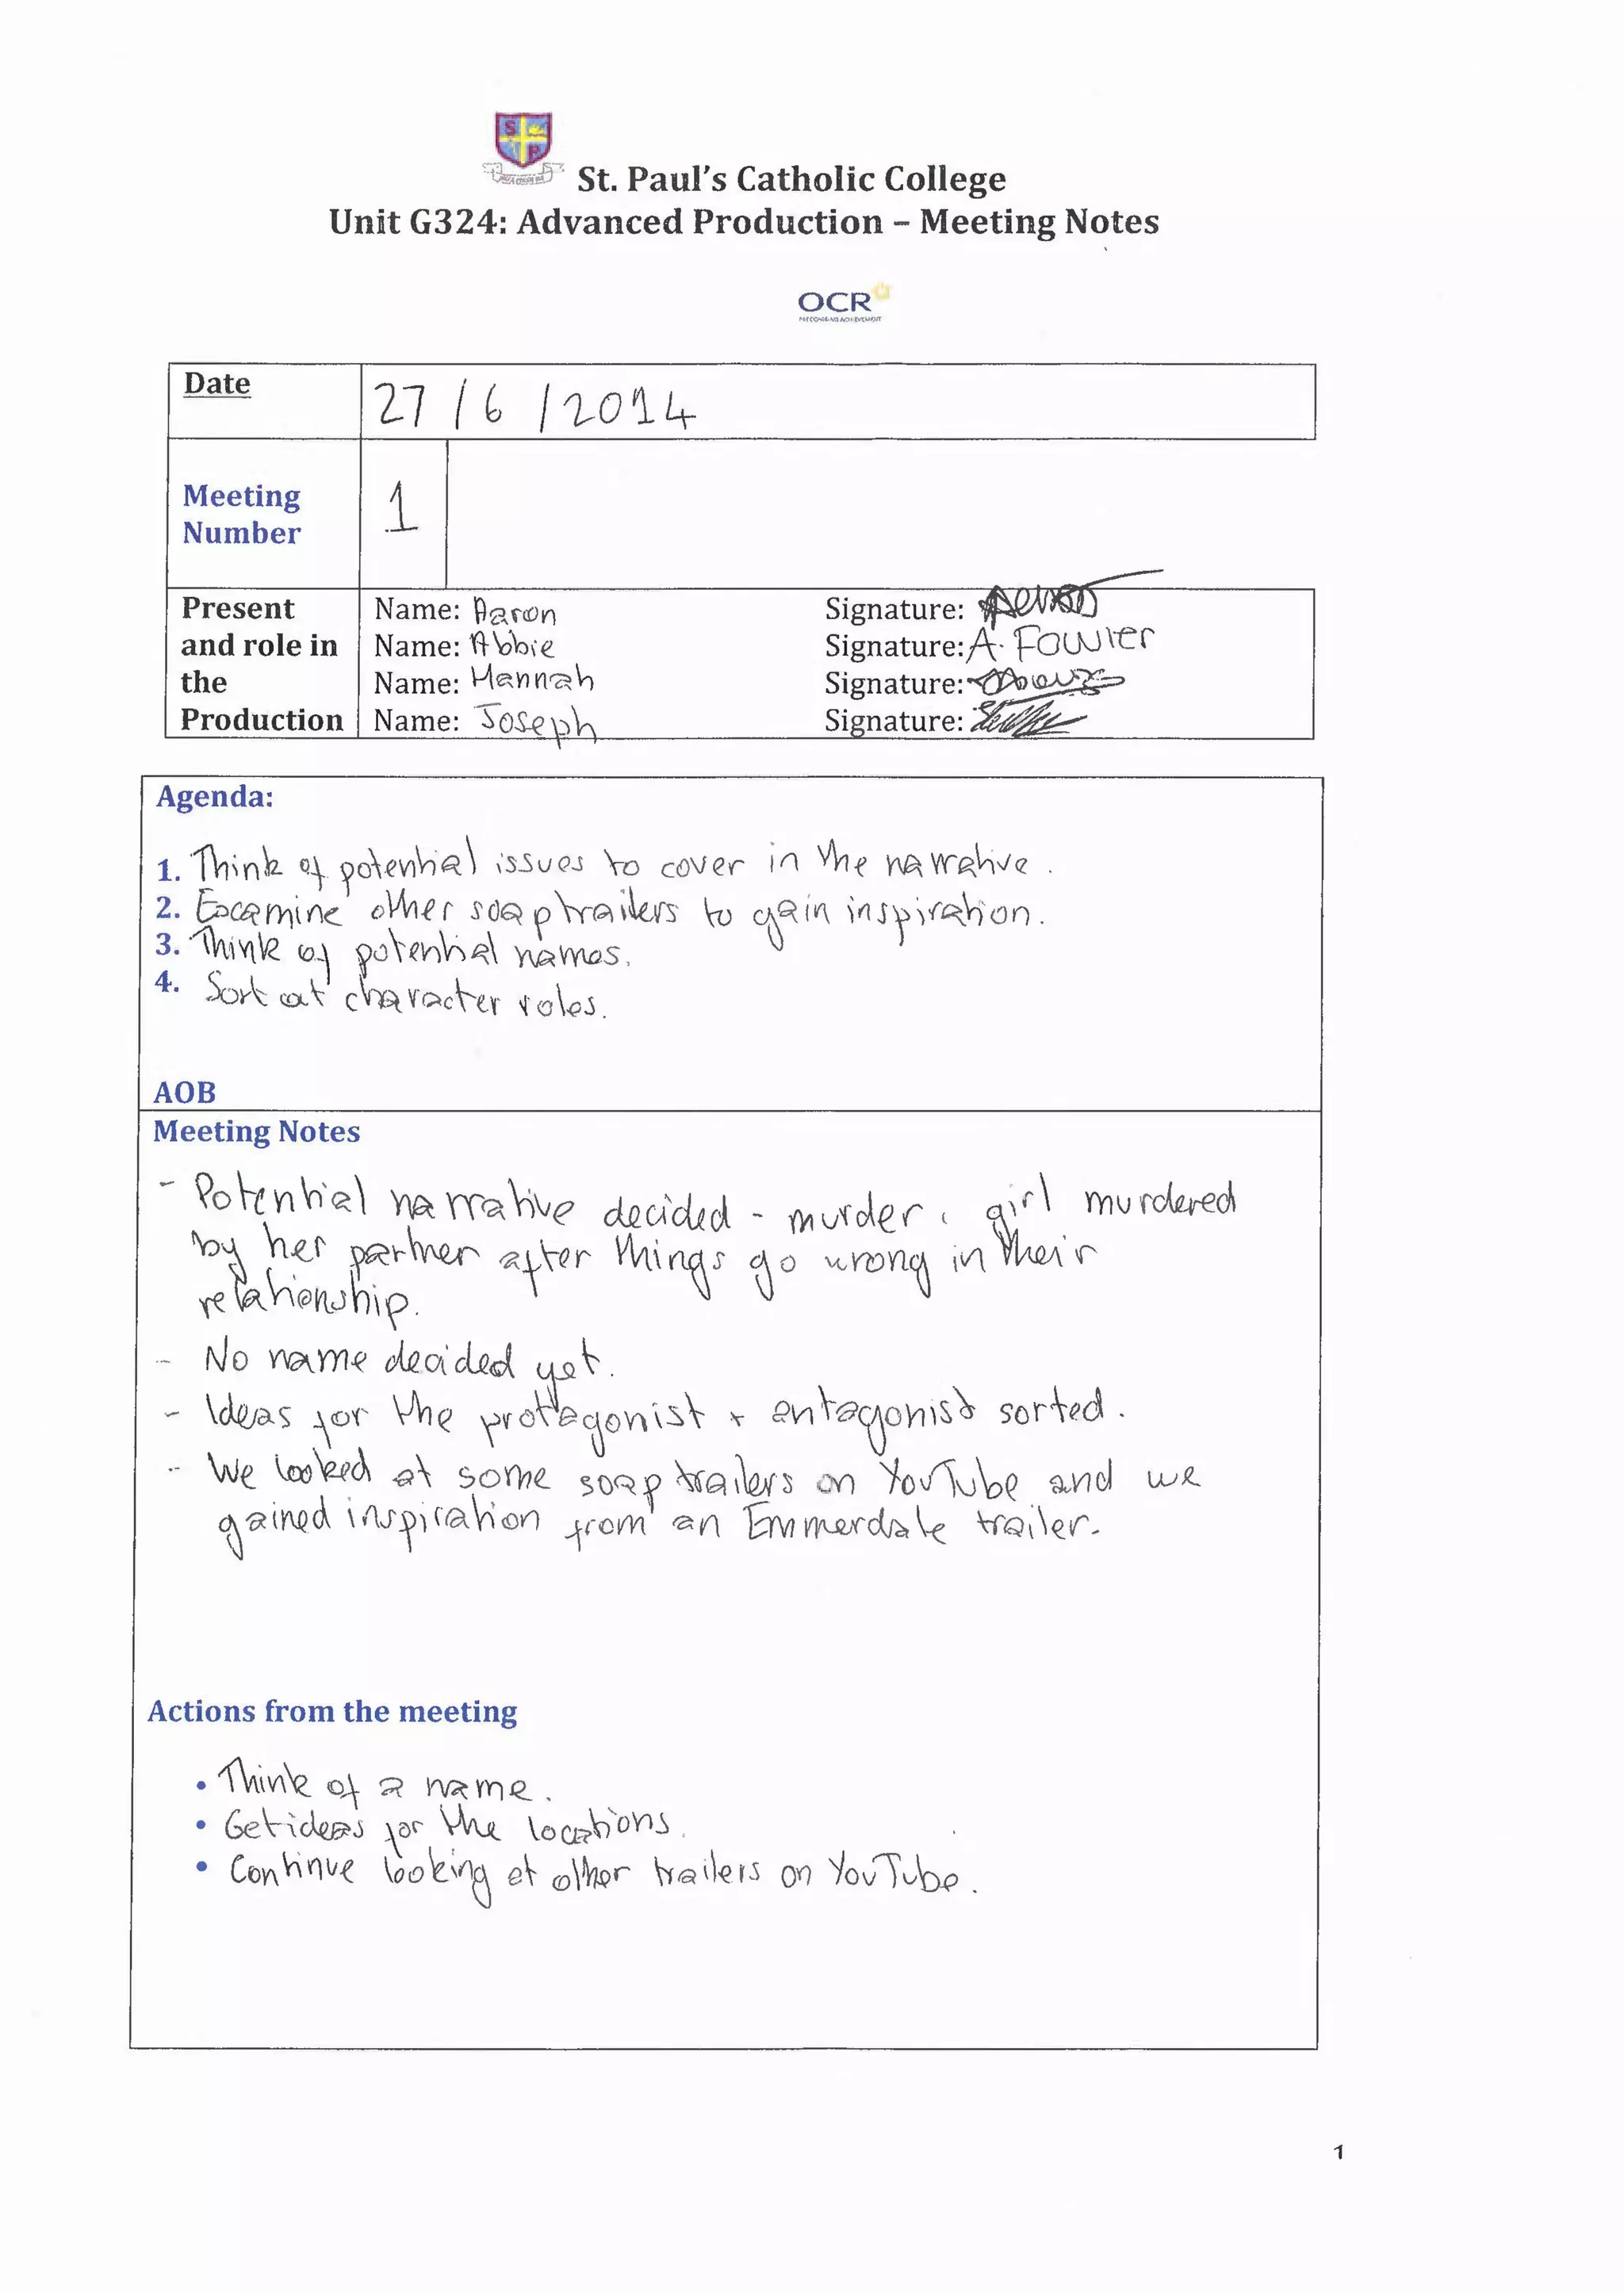 St. Paul's Catholic College
Unit G324: Advanced Production – Meeting Notes
OCR
Date
27 / 6 / 2014
Meeting
Number
1
Present
and role in
the
Production
Name: Aaron
Signature:
Name: Abbie
Signature: A. Fowler
Name: Hannah
Signature:
Name: Joseph
Signature:
Agenda:
1. Think of potential issues to cover in the narrative.
2. Examine other soap trailers to gain inspiration.
3. Think of potential names.
4. Sort out character roles.
AOB
Meeting Notes
- Potential narrative decided - murder, girl murdered
by her partner after things go wrong in their
relationship.
- No name decided yet.
- Ideas for the protagonist + antagonist sorted.
- We looked at some soap trailers on YouTube and we
gained inspiration from an Emmerdale trailer.
Actions from the meeting
• Think of a name.
• Get ideas for the locations.
• Continue looking at other trailers on YouTube.
1